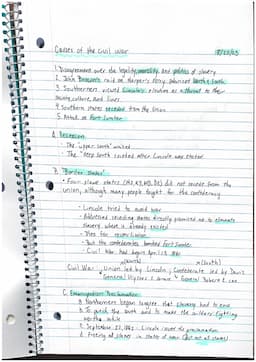 Causes of the Civil War
1. Disagreement over the legality, morality, and politics of slavery
2. John Brown's raid on Harper's Ferry polarized North & South
3. Southerners viewed Lincoln's election as a threat to the
society, culture, and lives
4. Southern states seceded from the Union
5. Attack on Fort Sumter
A. Secession
- The "upper south" waited
- The "deep south" seceded after Lincoln was elected
B. "Border States"
- Four slave states (MO, KY, MD, DE) did not secede from the
union, although many people fought for the confederacy
- Lincoln tried to avoid war
- Addressed seceding states directly, promised not to eliminate
slavery where it already existed
- Plea for reconciliation
- But the confederates bombed Fort Sumter
- Civil War had begun April 12, 1861
(North) (South)
Civil War: Union led by Lincoln; Confederate led by Davis
General Ulysses S. Grant & General Robert E. Lee
C. Emancipation Proclamation
A. Northerners began to agree that slavery had to end
B. To punish the south and to make the soldiers fighting
worthwhile
C. September 22, 1862: Lincoln issued the proclamation
D. Freeing all slaves in states of